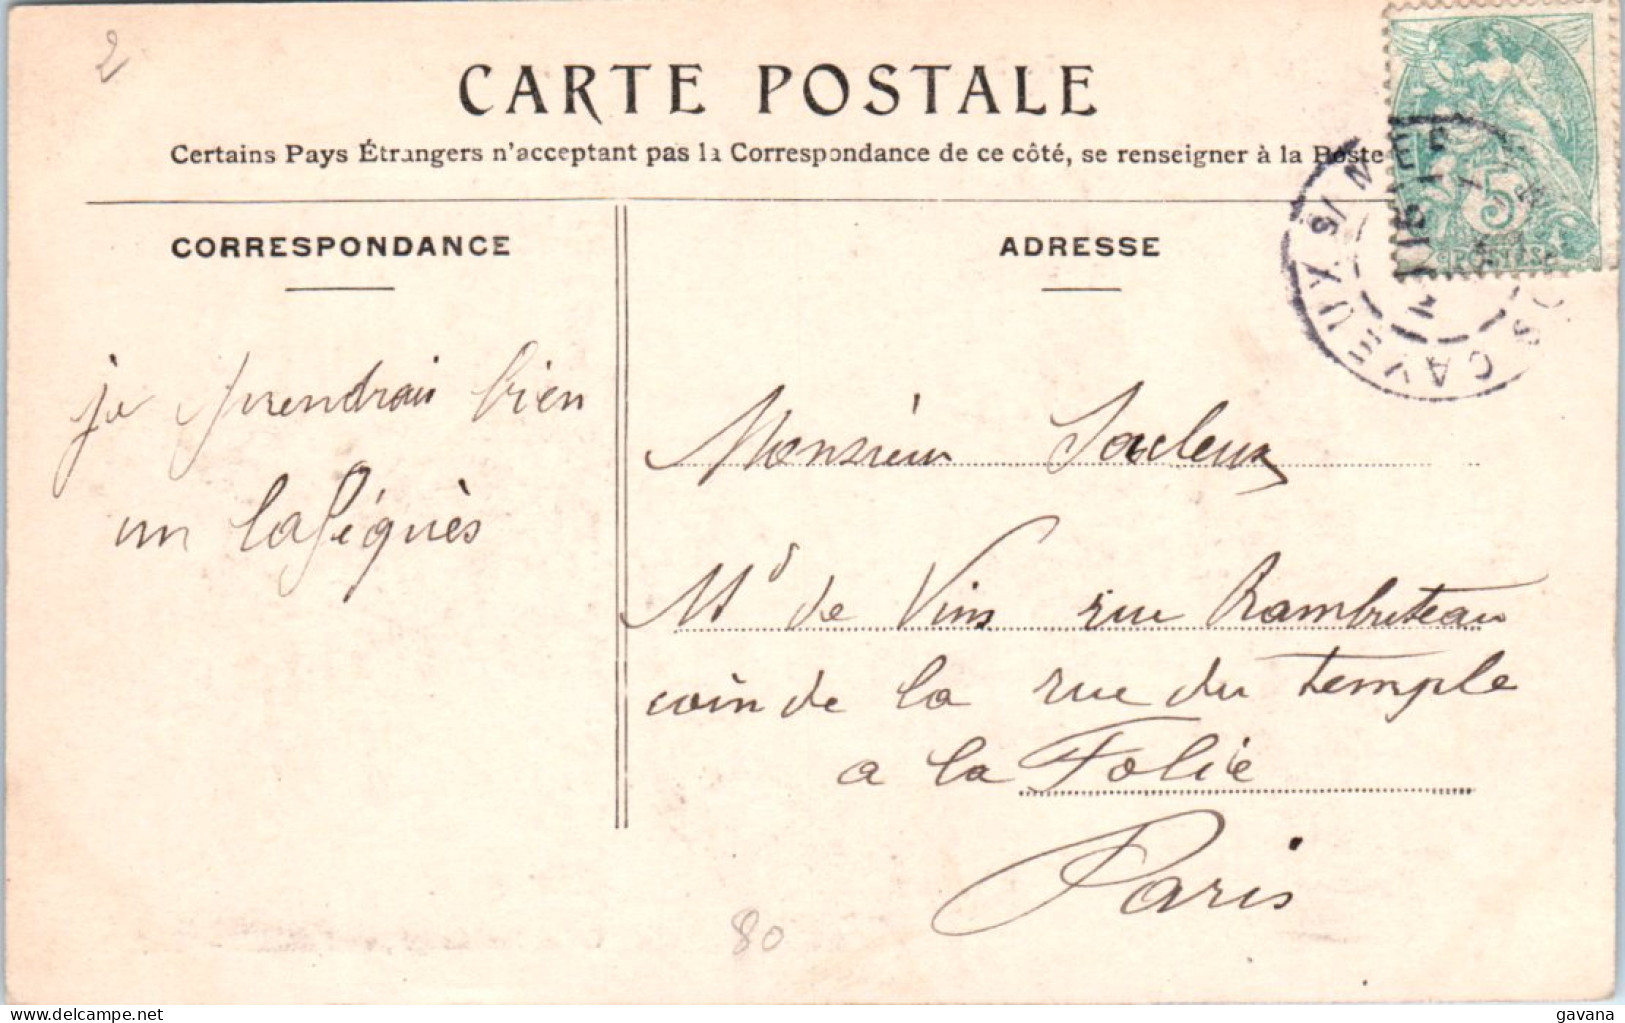 2
CARTE POSTALE
Certains Pays Étrangers n'acceptant pas la Correspondance de ce côté, se renseigner à la Poste
CORRESPONDANCE
ADRESSE
5
POSTES
CAYEUX S/
je prendrai bien
un laPéquès
Monsieur
Md de Vins rue Rambuteau
coin de la rue du temple
a la Folie
Paris
80
delcampe.net
gavana